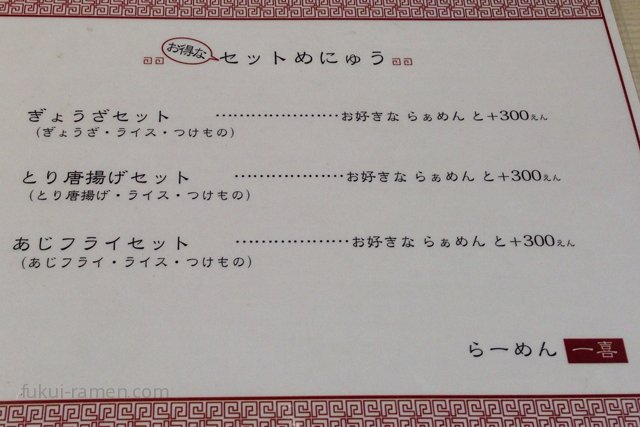 お得な
セットめにゅう
ぎょうざセット ‥‥‥‥‥‥‥お好きな らぁめん と+300えん
(ぎょうざ・ライス・つけもの)
とり唐揚げセット ‥‥‥‥‥‥お好きな らぁめん と+300えん
(とり唐揚げ・ライス・つけもの)
あじフライセット ‥‥‥‥‥‥‥お好きな らぁめん と+300えん
(あじフライ・ライス・つけもの)
らーめん 一喜
fukui-ramen.com